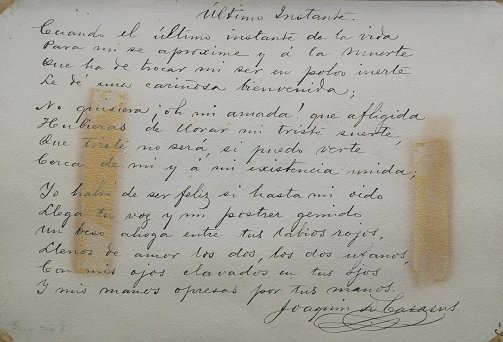 Último Instante.
Cuando el último instante de la vida
Para mi se aproxime y á la muerte
Que ha de trocar mi ser en polvo inerte
Le dé una cariñosa bienvenida;
No quisiera ¡oh mi amada! que afligida
Hubieras de llorar mi triste suerte,
Que triste no será si puedo verte
Cerca de mi y á mi existencia unida;
Yo habré de ser feliz si hasta mi oido
Llega tu voz y mi postrer gemido
Un beso ahoga entre tus labios rojos,
Llenos de amor los dos, los dos ufanos,
Con mis ojos clavados en tus ojos
Y mis manos opresas por tus manos.
Joaquin D. Casasus